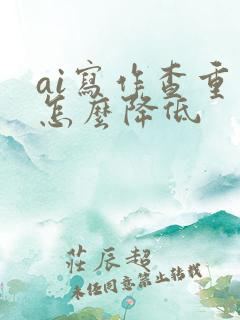 ai寫作查重
怎麼降低
莊辰超
未经同意禁止转载